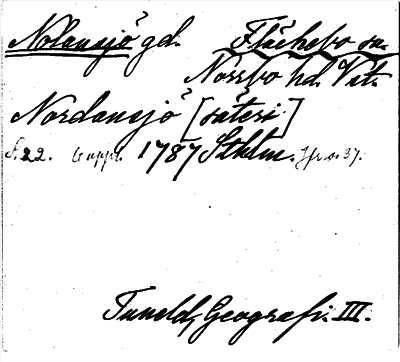 Nolansjö gd. Fläckebo sn.
Norrbo hd. Vstm.
Nordansjö [säteri]
S. 22. 6 uppl. 1787 Sthlm. Jfr s. 37.
Tuneld, Geografi. III.